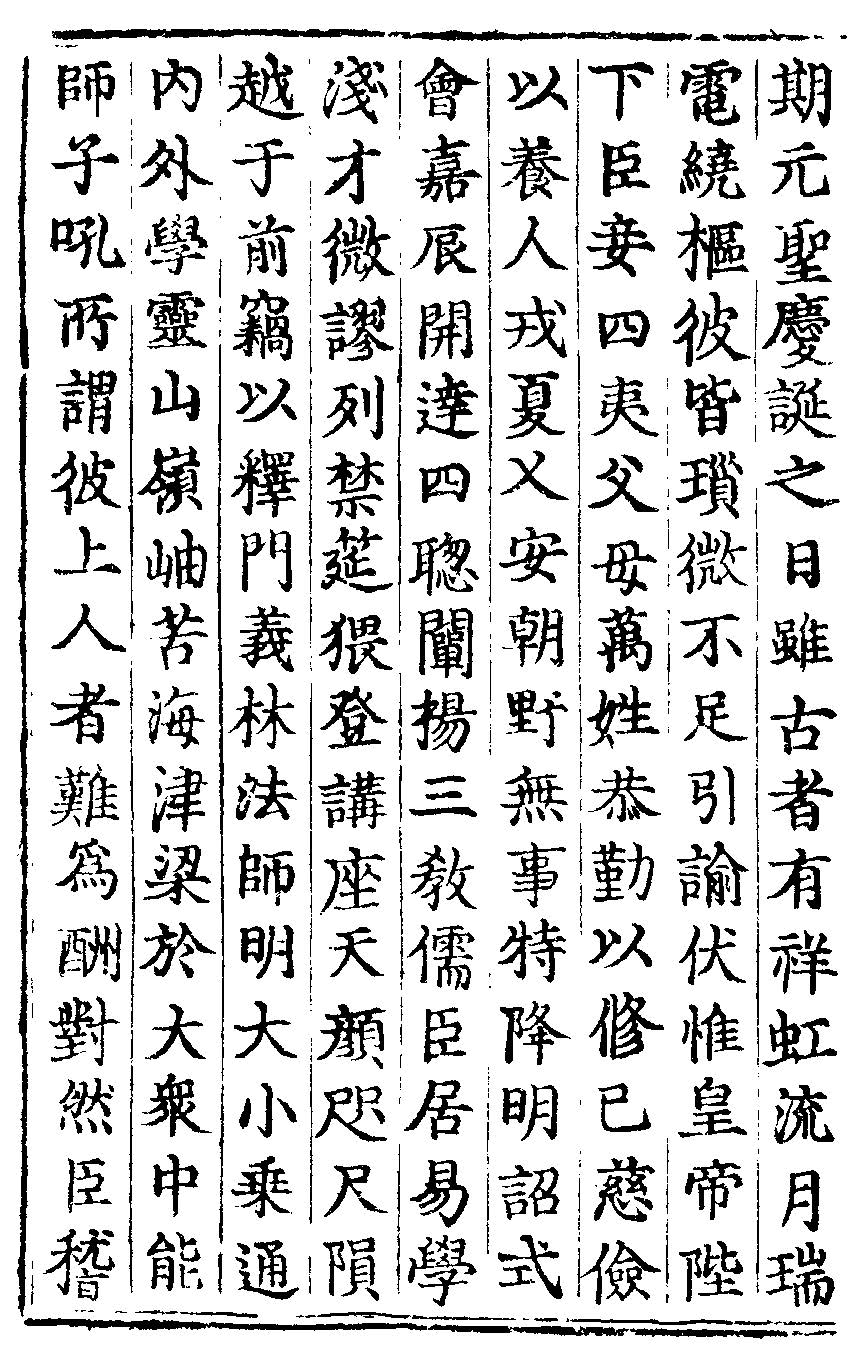 期元聖慶誕之日雖古者有祥虹流月瑞
電繞樞彼皆瑣微不足引諭伏惟皇帝陛
下臣妾四夷父母萬姓恭勤以修已慈儉
以養人戎夏乂安朝野無事特降明詔式
會嘉辰開達四聰闡揚三教儒臣居易學
淺才微謬列禁筵猥登講座天顏咫尺隕
越于前竊以釋門義林法師明大小乗通
內外學靈山嶺岫苦海津梁於大衆中能
師子吼所謂彼上人者難爲酬對然臣稽